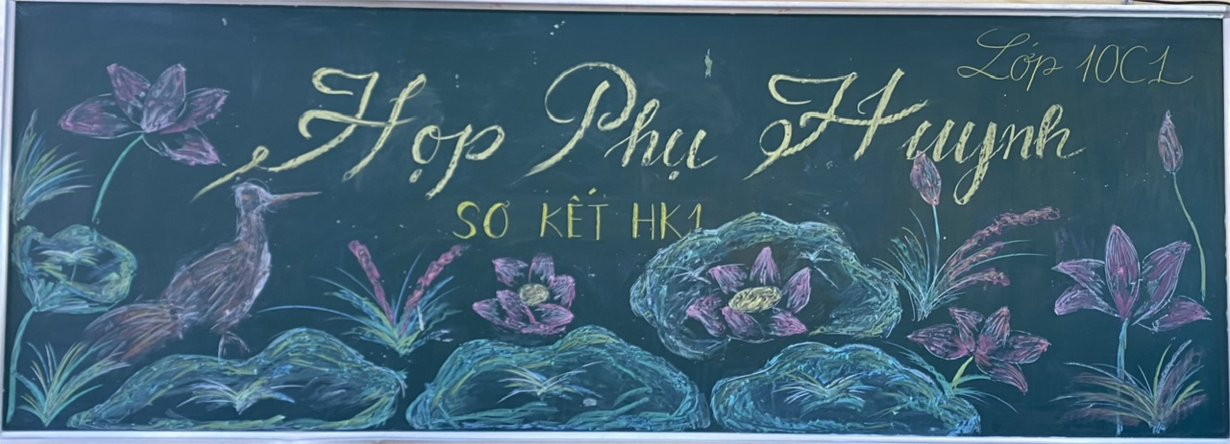 Lớp 10C1
Họp Phụ Huynh
SƠ KẾT HK1